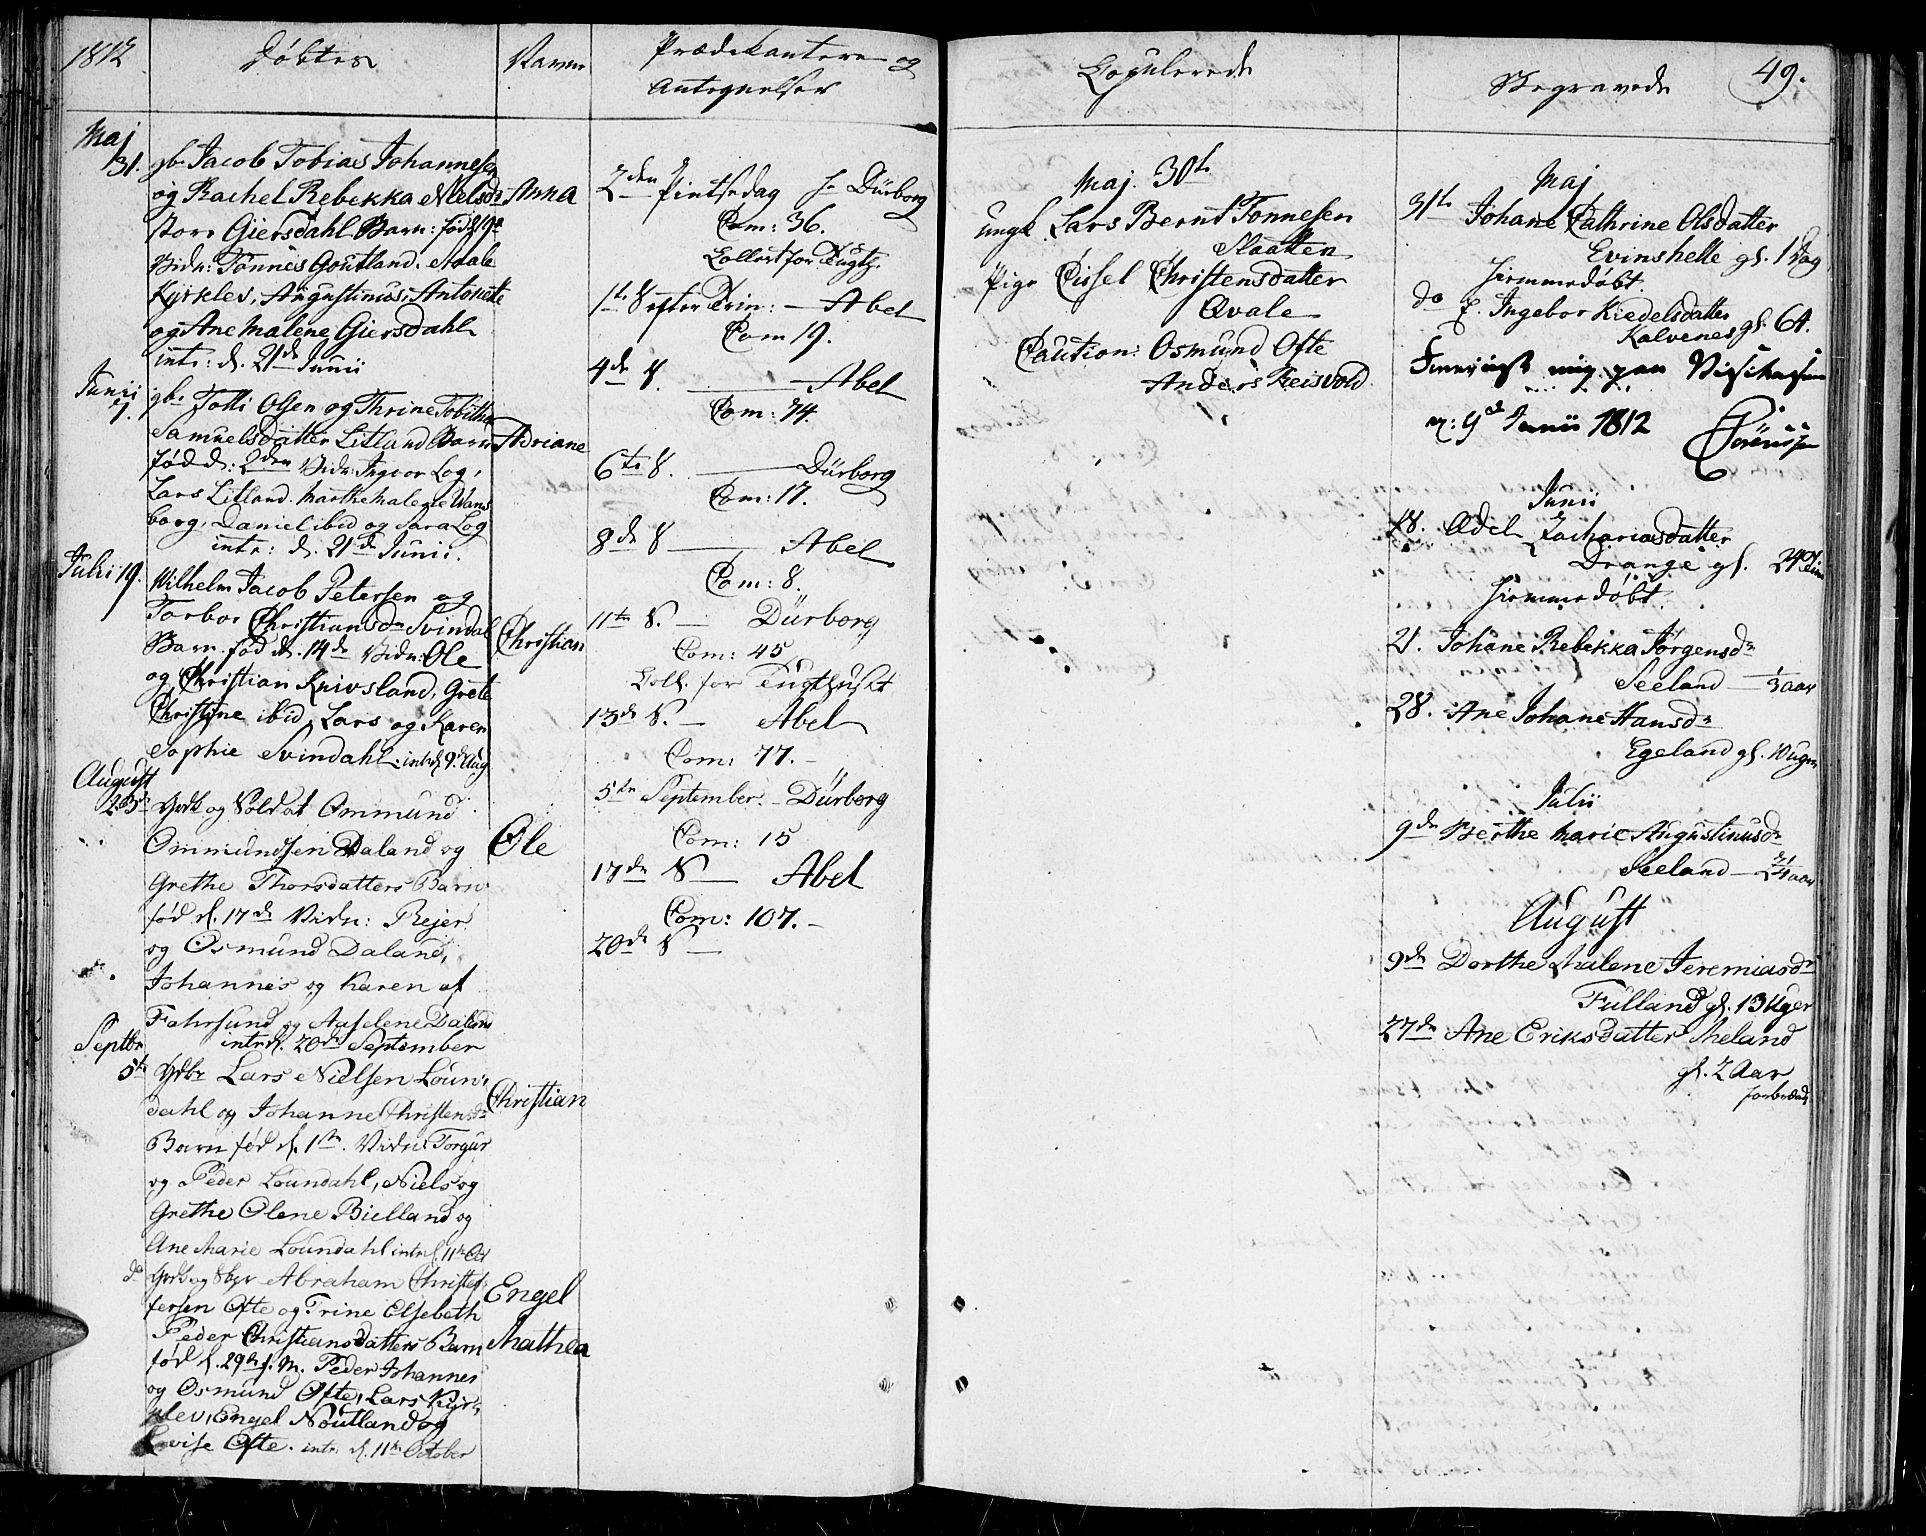 1812
Døbtes
Navne
Prædikantere og
Antegnelser
Copulerede
Begravede
49.
Maj
31. gbr Jacob Tobias Johannesen
og Rachel Rebekka Nielsdr
store Giersdahl Barn: fød d 19de
Vidn: Tønnes Goutland. Aale
Kyrklev, Augustinus, Antonete
og Ane Malene Giersdahl
intr: d. 21de Junii
Anna
Junii
7. gbr Tolli Olsen og Thrine Tobitha
Samuelsdatter Litland Barn
fød d: 2den Vidn: Log,
Lars Litland. Marthe Malene Vans
borg, Daniel ibid og Sara Log
intr: d. 21de Junii.
Adriane
Julii 19.
Wilhelm Jacob Petersen og
Torbor Christiansdr Svindal
Barn fød d. 14de Vidn: Ole
og Christian Knivsland, Grete
Christine ibid, Lars og Karen
Sophie Svindahl. intr d 9de Aug
Christian
August
23de Gbr og Soldat Ommund
Ommundsen Daland og
Grethe Thorsdatters Barn
fød d. 17de Vidn: Rejer
og Osmund Daland,
Johannes og Karen af
Fahrsund og Aaselene Daland
intr d. 20de September
Ole
Septbr
5te Gdbr Lars Nielsen Loun
dahl og Johanne Christensdr
Barn fød d. 1ste. Vidn: Torgur
og Peder Loundahl, Niels og
Grethe Olene Bielland og
Ane Marie Loundahl intr d. 11te Oct
Christian
do Gbr og Abraham Christof
fersen Ofte og Trine Elsebeth
Peder Christiansdatters Barn
fød d. 29de f. M. Peder Johannes
og Osmund Ofte, Lars Kyr
klev, Engel Noutland og
Lovise Ofte. intr. d. 11te October
Engel
Mathea
2den Pintsedag hr Dürborg
Com: 36.
Collect for Tugth.
1ste S efter Trin: — Abel
Com 19.
4de S. — Abel
Com: 74.
6te S. — Dürborg
Com: 17.
8de S — Abel
Com: 8.
11te S. — Dürborg
Com: 45
Coll. for Tugthuset
13de S. — Abel
Com: 77.
5te September — Dürborg
Com: 15
17de S — Abel
Com: 107.
20de S —
Maj. 30te
ungk. Lars Bernt Tønnesen
Slaatten
Pige Sissel Christensdatter
Qvale
Caution: Osmund Ofte
Anders Reisvold
Maj
31te Johane Cathrine Olsdatter
Evinshelle gl. 1 Dag
hiemmedøbt.
do E. Ingebor Kiedelsdatter
Kalvenes gl. 64.
mig paa
d: 9de Junii 1812
Junii
18. Adel Zachariasdatter
Drange gl. 24 Tim
hiemmedøbt.
21. Johane Rebekka Jørgensdr
Seeland — 1/3 aar
28. Ane Johane Hansdr
Egeland gl. 10 uger
Julii
9de Berthe Marie Augustinusdr
Seeland — 2 1/4 aar
August
9de Dorthe Malene Jeremiasdr
Fulland gl. 13 Uger
27de Ane Eriksdatter Meland
gl. 2 Aar